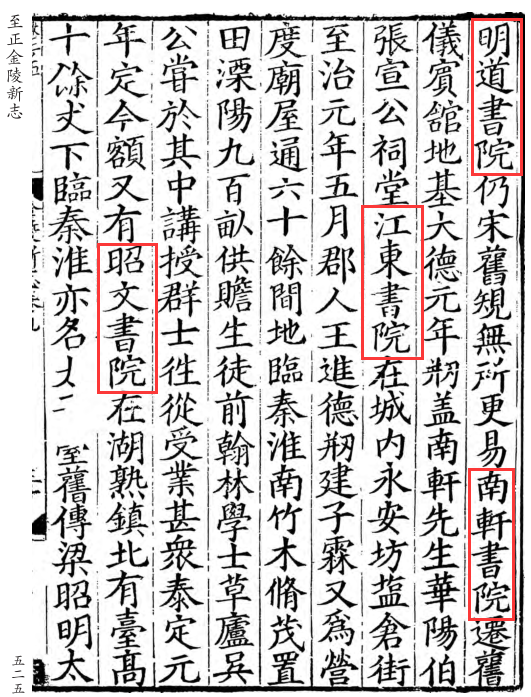 明道書院仍宋舊規無所更易南軒書院遷舊
儀賓舘地基大德元年剏盖南軒先生華陽伯
張宣公祠堂江東書院在城内永安坊盐倉街
至治元年五月郡人王進德剏建子霖又爲營
度廟屋通六十餘間地臨秦淮南竹木脩茂置
田溧陽九百畝供贍生徒前翰林學士草廬吳
公甞於其中講授群士徃從受業甚衆泰定元
年定今額又有昭文書院在湖熟鎮北有臺高
十餘丈下臨秦淮亦名舊傳梁昭明太
至正金陵新志
五二五